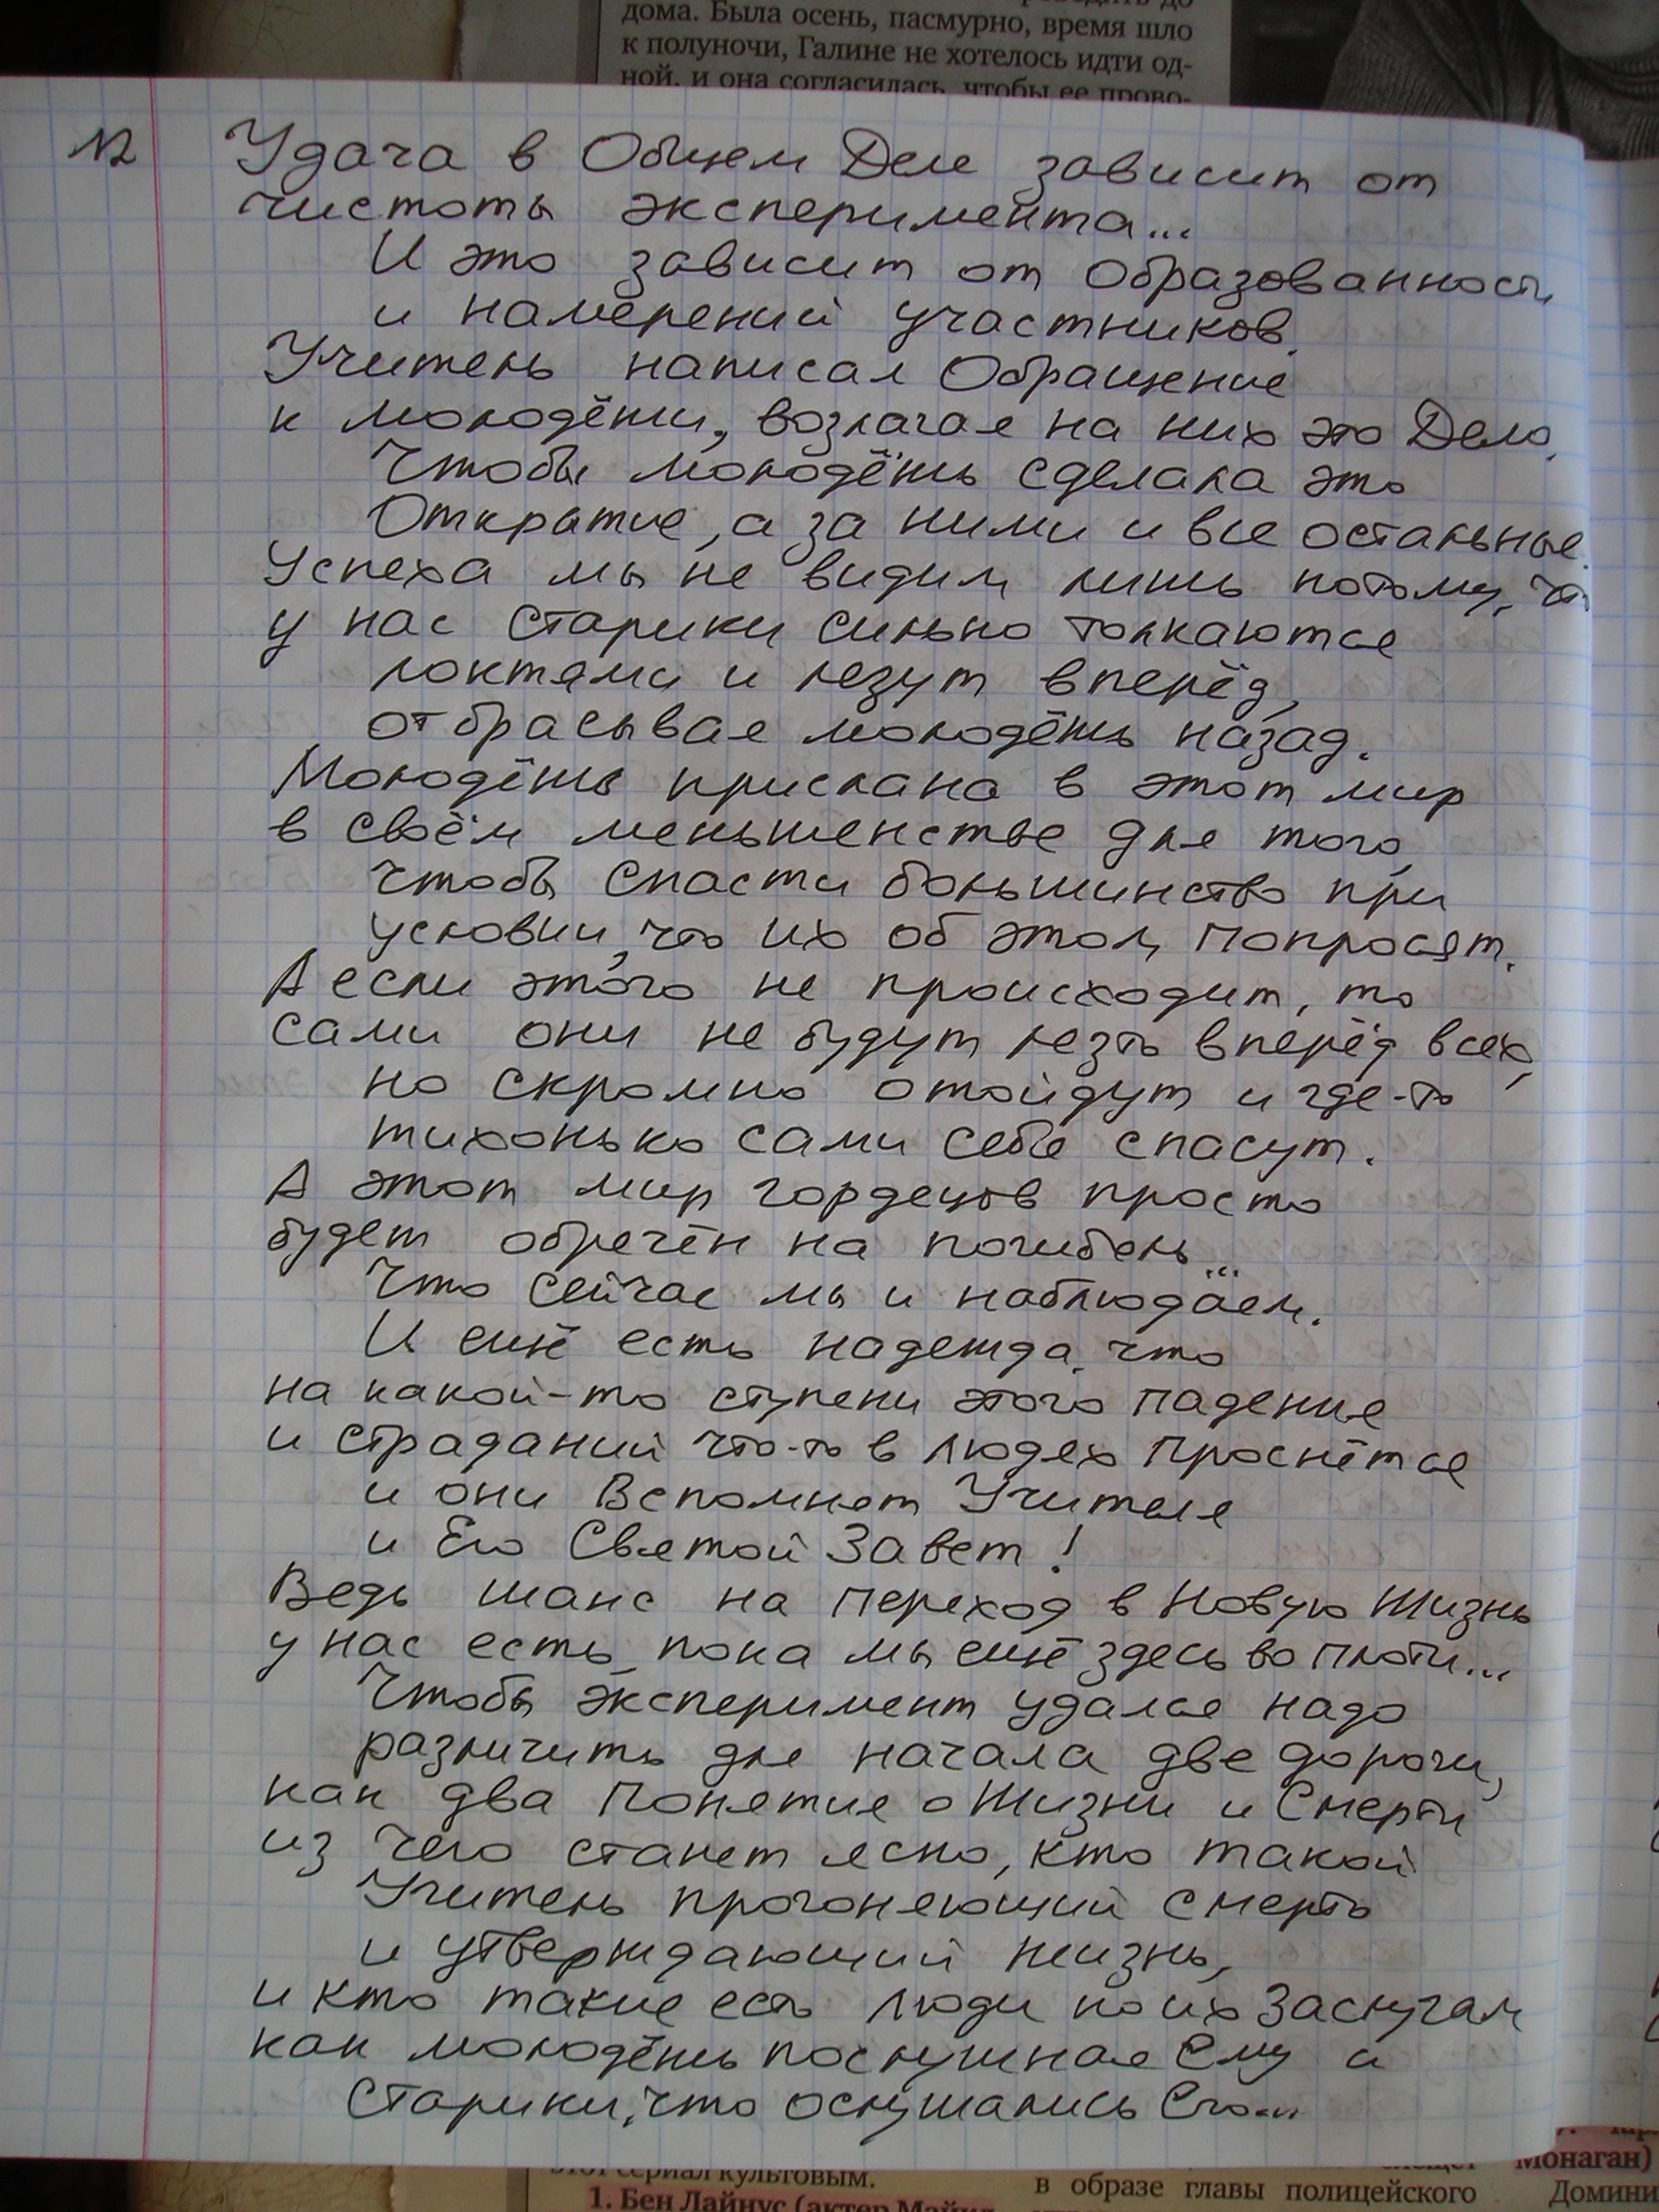 дома. Была осень, пасмурно, время шло
к полуночи, Галине не хотелось идти од-
ной, и она согласилась, чтобы ее прово-
12
Удача в Общем Деле зависит от
чистоты эксперимента...
И это зависит от образованности
и намерений участников.
Учитель написал Обращение
к молодёжи, возлагая на них это Дело,
Чтобы молодёжь сделала это
Открытие, а за ними и все остальные.
Успеха мы не видим лишь потому, что
у нас старики сильно толкаются
локтями и лезут вперёд,
отбрасывая молодёжь назад.
Молодёжь прислана в этот мир
в своём меньшенстве для того,
чтобы спасти большинство при
условии, что их об этом попросят.
А если этого не происходит, то
сами они не будут лезть вперёд всех,
но скромно отойдут и где-то
тихонько сами себя спасут.
А этот мир гордецов просто
будет обречён на погибель...
Что сейчас мы и наблюдаем.
И ещё есть надежда, что
на какой-то ступени этого падения
и страданий что-то в людях проснётся
и они Вспомнят Учителя
и Его Святой Завет!
Ведь шанс на переход в Новую Жизнь
у нас есть, пока мы ещё здесь во плоти...
Чтобы эксперимент удался надо
различить для начала две дороги,
как два Понятия о Жизни и Смерти
из чего станет ясно, кто такой
Учитель прогоняющий смерть
и утверждающий жизнь,
и кто такие есть люди по их заслугам
как молодёжь послушная Ему и
старики, что ослушались Его...
этот сериал культовым.
1. Бен Лайнус (актер Майкл
в образе главы полицейского
Монаган)
Домини